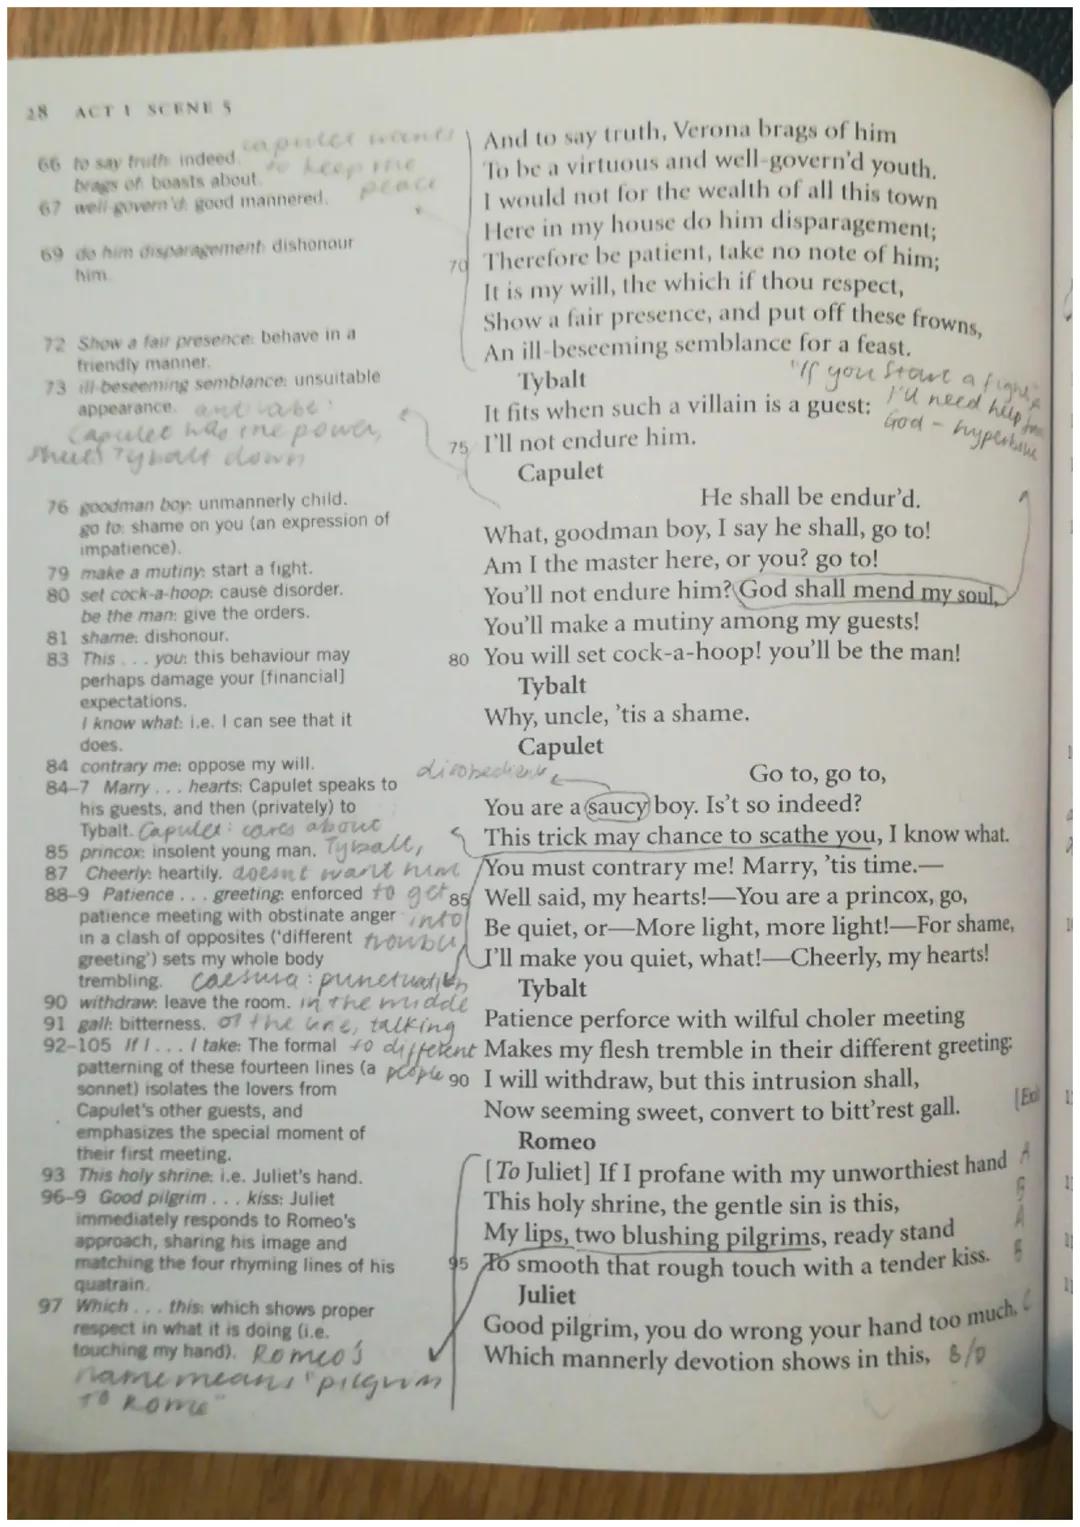 28 ACT 1 SCENE 5
66 to say truth: indeed.
brags of: boasts about.
67 well-govern'd: good mannered.
capulet wants
to keep the
peace
69 do him disparagement: dishonour
him.
72 Show a fair presence: behave in a
friendly manner.
73 ill-beseeming semblance: unsuitable
appearance.
Capulet has the power,
shuts Tybalt down
76 goodman boy: unmannerly child.
go to: shame on you (an expression of
impatience).
79 make a mutiny: start a fight.
80 set cock-a-hoop: cause disorder.
be the man: give the orders.
81 shame: dishonour.
83 This . . . you: this behaviour may
perhaps damage your [financial]
expectations.
I know what: i.e. I can see that it
does.
84 contrary me: oppose my will.
84–7 Marry . . . hearts: Capulet speaks to
his guests, and then (privately) to
Tybalt. Capulet: cares about
85 princox: insolent young man. Tybalt,
87 Cheerly: heartily. doesnt want him
88–9 Patience . . . greeting: enforced to get
patience meeting with obstinate anger into
in a clash of opposites ('different trouble
greeting') sets my whole body
trembling. caesura: punctuation
90 withdraw: leave the room. in the middle
91 gall: bitterness. of the line, talking
92–105 If I . . . I take: The formal to different
patterning of these fourteen lines (a people
sonnet) isolates the lovers from
Capulet's other guests, and
emphasizes the special moment of
their first meeting.
93 This holy shrine: i.e. Juliet's hand.
96–9 Good pilgrim . . . kiss: Juliet
immediately responds to Romeo's
approach, sharing his image and
matching the four rhyming lines of his
quatrain.
97 Which . . . this: which shows proper
respect in what it is doing (i.e.
touching my hand). Romeo's
name means "pilgrim
to Rome"
And to say truth, Verona brags of him
To be a virtuous and well-govern'd youth.
I would not for the wealth of all this town
Here in my house do him disparagement;
70 Therefore be patient, take no note of him;
It is my will, the which if thou respect,
Show a fair presence, and put off these frowns,
An ill-beseeming semblance for a feast.
Tybalt
"If you start a fight"
I'll need help from
God - hyperbole
It fits when such a villain is a guest:
75 I'll not endure him.
Capulet
He shall be endur'd.
What, goodman boy, I say he shall, go to!
Am I the master here, or you? go to!
You'll not endure him? God shall mend my soul,
You'll make a mutiny among my guests!
80 You will set cock-a-hoop! you'll be the man!
Tybalt
Why, uncle, 'tis a shame.
Capulet
Go to, go to,
You are a saucy boy. Is't so indeed?
This trick may chance to scathe you, I know what.
You must contrary me! Marry, 'tis time.—
85 Well said, my hearts!—You are a princox, go,
Be quiet, or—More light, more light!—For shame,
I'll make you quiet, what!—Cheerly, my hearts!
Tybalt
Patience perforce with wilful choler meeting
Makes my flesh tremble in their different greeting:
90 I will withdraw, but this intrusion shall,
Now seeming sweet, convert to bitt'rest gall.
Romeo
[To Juliet] If I profane with my unworthiest hand A
This holy shrine, the gentle sin is this, B
My lips, two blushing pilgrims, ready stand A
95 To smooth that rough touch with a tender kiss. B
Juliet
Good pilgrim, you do wrong your hand too much, C
Which mannerly devotion shows in this, B/D